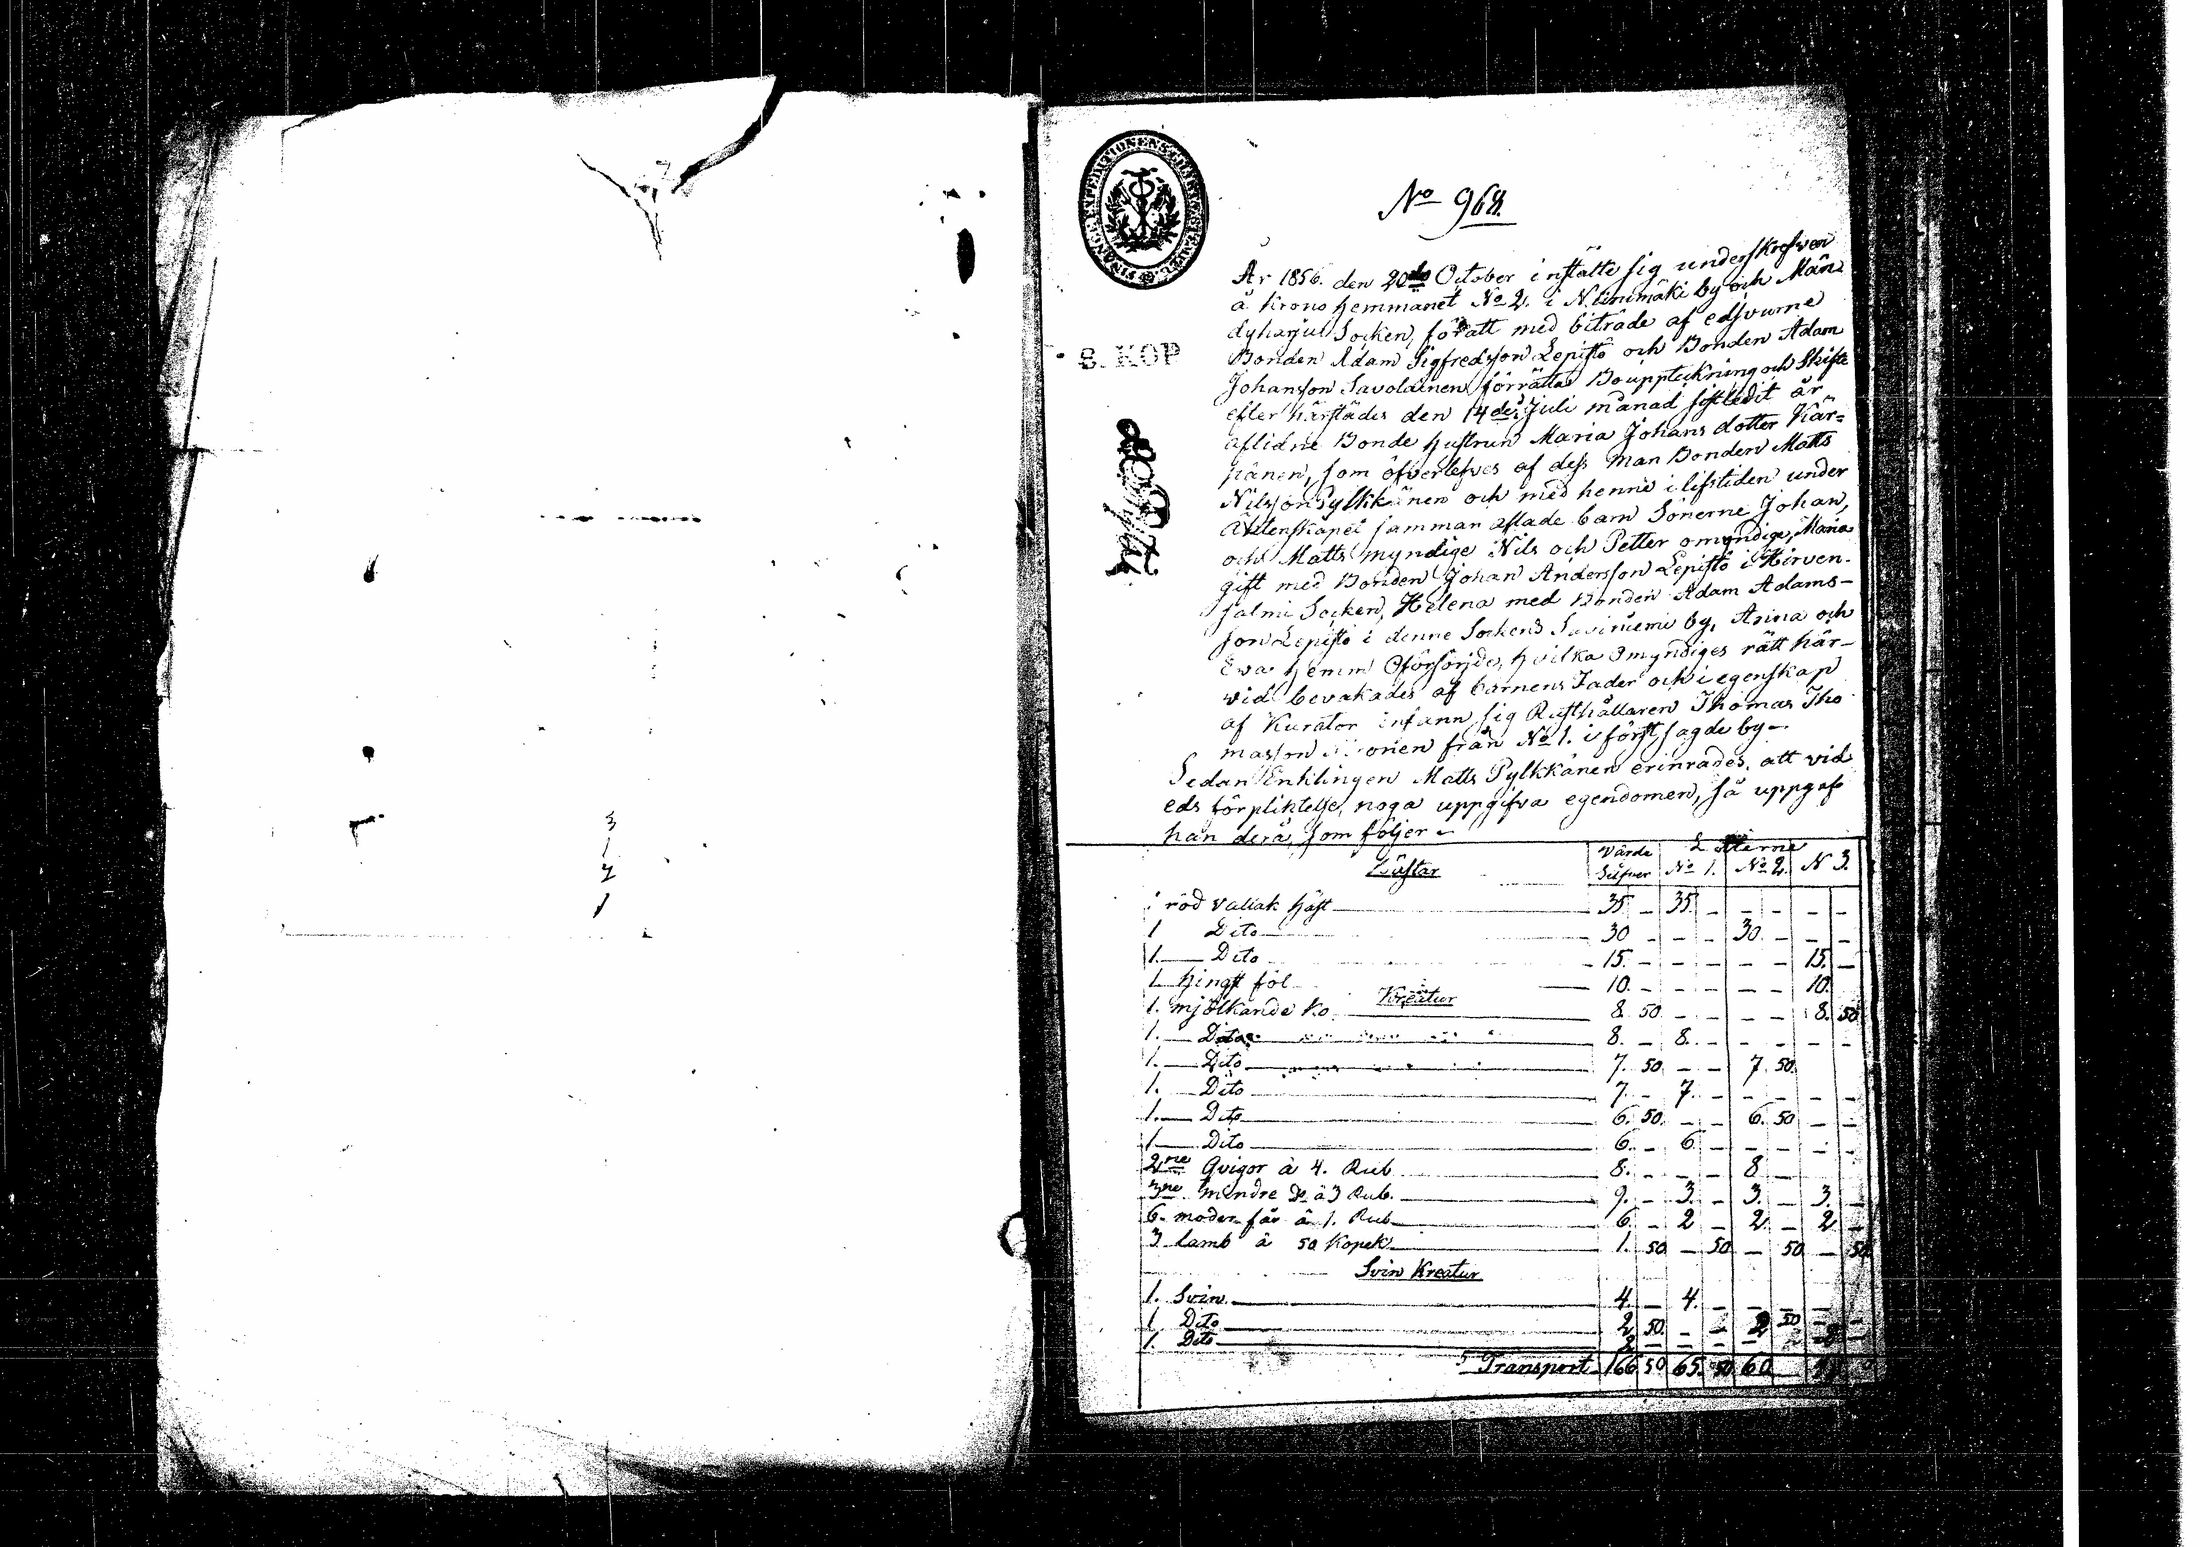 3
1
2
1
FINANCE EXPEDITIONENS STÄMPEL
No 968.
8. KOP
År 1856. den 20de October instälte sig underskrefven
å Krono Hemmanet No 2. i Niinimäki by och Män-
dyharju Socken, för att med biträde af edsvurne
Bonden Adam Sigfredsson Lepistö och Bonden Adam
Johansson Savolainen förrätta Bouppteckning och Skifte
efter härstädes den 14de Juli månad sistledit år
aflidne Bonde hustrun Maria Johans dotter Kär-
hänen, som öfverlefves af dess man Bonden Matts
Nilsson Pylkkänen och med henne i lifstiden under
Äktenskapet samman aflade barn Sönerne Johan,
och Matts myndige Nils och Petter omyndige, Maria
gift med Bonden Johan Andersson Lepistö i Hirven-
salmi Socken, Helena med Bonden Adam Adams-
son Lepistö i denne Sockens Saviniemi by, Anna och
Ewa hemm Oförsörjde, hvilka Omyndiges rätt här-
vid bevakades af barnens Fader och i egenskap
af Kurator infann sig Rusthållaren Thomas Tho
masson från No 1. i först sagde by-
Sedan Enklingen Matts Pylkkänen erinrades, att vid
eds förpliktelse, noga uppgifva egendomen, så uppgaf
han derå, som följer-
Värde Lotterne
Hästar Silfver No 1. No 2. N 3.
1 röd vallak häst 35 - 35 - - - - -
1 Dito 30 - - - 30 - - -
1. Dito 15. - - - - - 15. -
1 hingst föl 10. - - - - - 10.
Kreatur
1. mjölkande ko 8. 50 - - - - 8. 50
1. Dito 8. - 8. - - - - -
1. Dito 7. 50 - - 7 50
1. Dito 7. - 7 - - - - -
1. Dito 6. 50. - - 6. 50 - -
1 Dito 6. - 6 - - - - -
2ne Qvigor à 4. Rub 8. - - - 8 -
3ne mindre Do à 3 Rub. 9. - 3. - 3. - 3. -
6. moder får à 1. Rub 6 - 2 - 2 - 2 -
3 lamb à 50 Kopek 1. 50 - 50 - 50 - 50
Svin Kreatur
1. Svin 4. - 4. - - - - -
1 Dito 2 50. - - 2 50 - -
1. Dito 2 - - - - - 2 -
Transport 166 50 65. 50 60